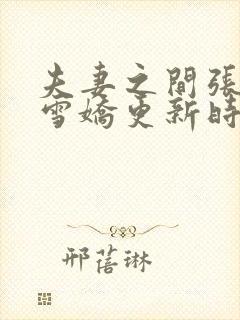 夫妻之間張
雪嬌更新時
邢蓓琳